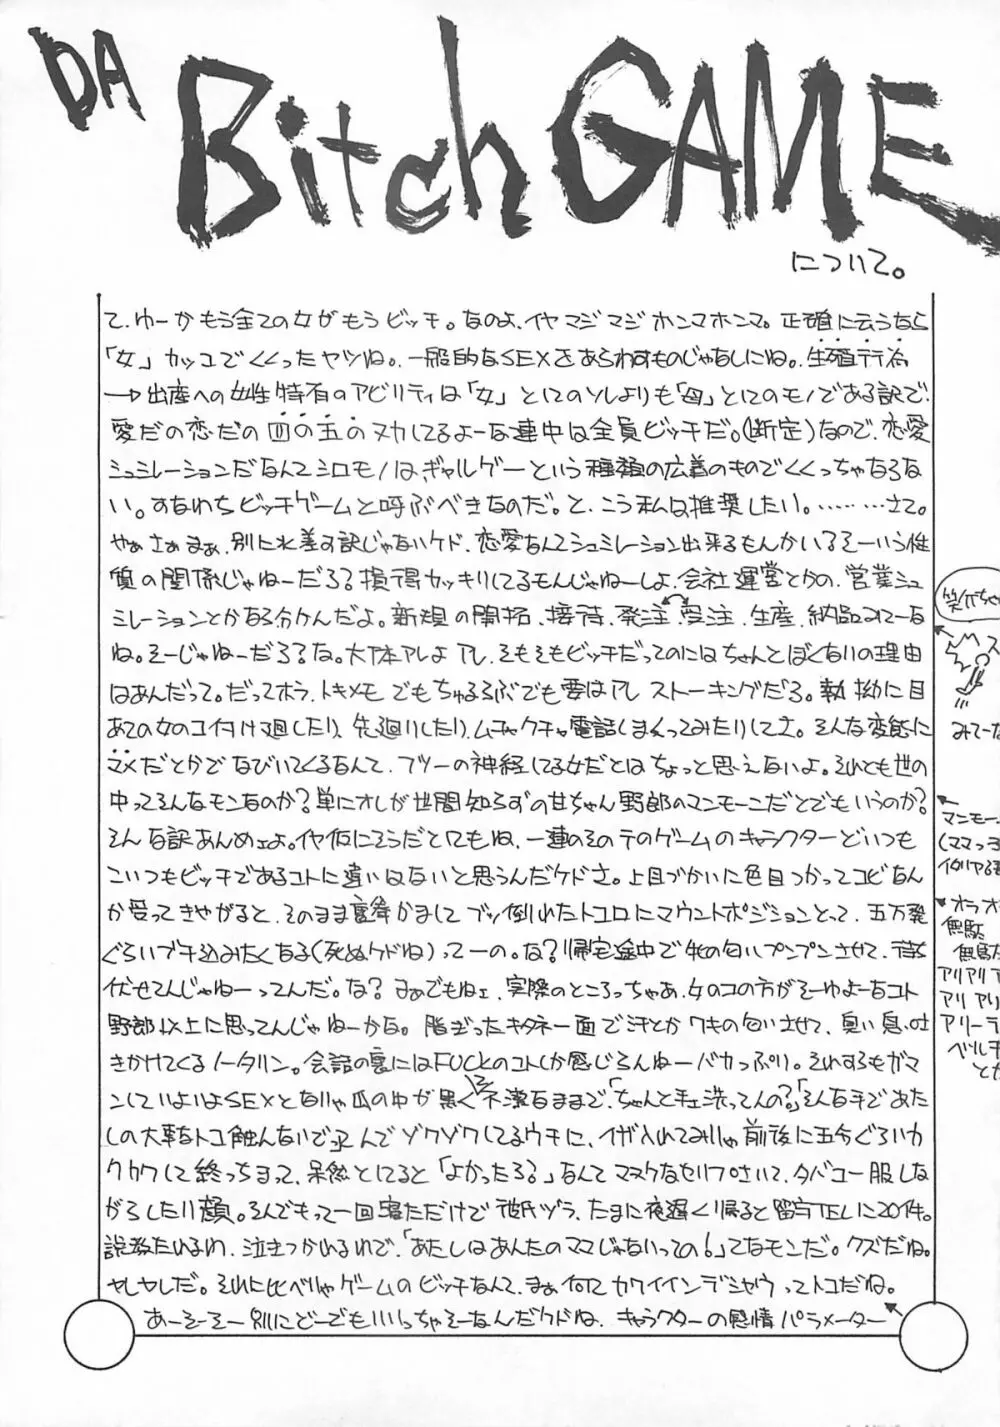 DA
Bitch GAME
について。
て、ゆーかもう全ての女がもうビッチ。なのよ、イヤマジマジホンマホンマ。正確に云うなら
「女」カッコでくくったヤツね。一般的なSEXをあらわすものじゃなしにね。生殖行為
→出産への女性特有のアビリティは「女」としてのソレよりも「母」としてのモノである訳で、
愛だの恋だの四の五のヌカしてるよーな連中は全員ビッチだ。(断定)なので、恋愛
シュミレーションだなんてシロモノはギャルゲーという種類の広義のものでくくっちゃならな
い。すなわちビッチゲームと呼ぶべきなのだ。と、こう私は推奨したい。………さて。
やぁさぁまぁ、別に水差す訳じゃないケド、恋愛なんてシュミレーション出来るもんかい?そーいう性
質の関係じゃねーだろ?損得カッキリしてるモンじゃねーしよ、会社運営とかの、営業シュ
ミレーションとかなら分かんだよ。新規の開拓、接待、発注、受注、生産、納品みてーな
ね。そーじゃねーだろ?な。大体アレよアレ、そもそもビッチだってのにはちゃんとぼくないの理由
はあんだって。だってホラ、トキメモでもちゅるるぶでも要はアレストーキングだろ。執拗に目
あての女のコ付け廻したり、先廻りしたり、ムチャクチャ電話しまくってみたりしてさ。そんな変態に
マメだとかでなびいてくるなんて、フツーの神経してる女だとはちょっと思えないよ。それとも世の
中ってそんなモンなのか?単にオレが世間知らずの甘ちゃん野郎のマンモーニだとでもいうのか?
そんな訳あんめェよ。イヤ仮にそうだとしてもね、一連のそのテのゲームのキャラクターどいつも
こいつもビッチであるコトに違いはないと思うんだケドさ。上目づかいに色目つかってコビなん
か売ってきやがると、そのまま裏拳かましてブッ倒れたトコロにマウントポジションとって、五万発
ぐらいブチ込みたくなる(死ぬケドね)って一の。な?帰宅途中で女の匂いプンプンさせて、待ち
伏せてんじゃねーってんだ。な?まぁでもねェ、実際のところっちゃあ、女のコの方がそーゆよーなコト
野郎以上に思ってんじゃねーかな。脂ぎったキタネー面で汗とかワキの匂いさせて、臭い息吐
きかけてくるノータリン。会話の裏にはFUCKのコトしか感じらんねーバカっぷり。それすらもガマ
ンしていよいよSEXとなりゃ爪の中が黒くて不潔なままで、「ちゃんと手ェ洗ってんの?」そんな手であた
しの大事なトコ触んないでよンでゾクゾクしてるウチに、イザ入れてみりゃ前後に五分ぐらいカ
クカクして終っちまって、呆然としてると「よかったろ?」なんてマヌケなセリフさいて、タバコ一服しな
がらしたり顔。そんでもって一回寝ただけで彼氏ヅラ、たまに夜遅く帰ると留守TELに20件。
説教たれるわ、泣きつかれるわで、「あたしはあんたのママじゃないっての!」てなモンだ。クズだね。
ヤレヤレだ。それに比べりゃゲームのビッチなんて、まぁ何てカワイインデショウってトコだね。
あーそーそー別にどーでもいいっちゃそーなんだケドね、キャラクターの感情パラメーター
みてーな
マンモーニ
(ママっ子
オラオ
無駄
アリアリア
アリアリ
アリーデ
ベルチ
とか